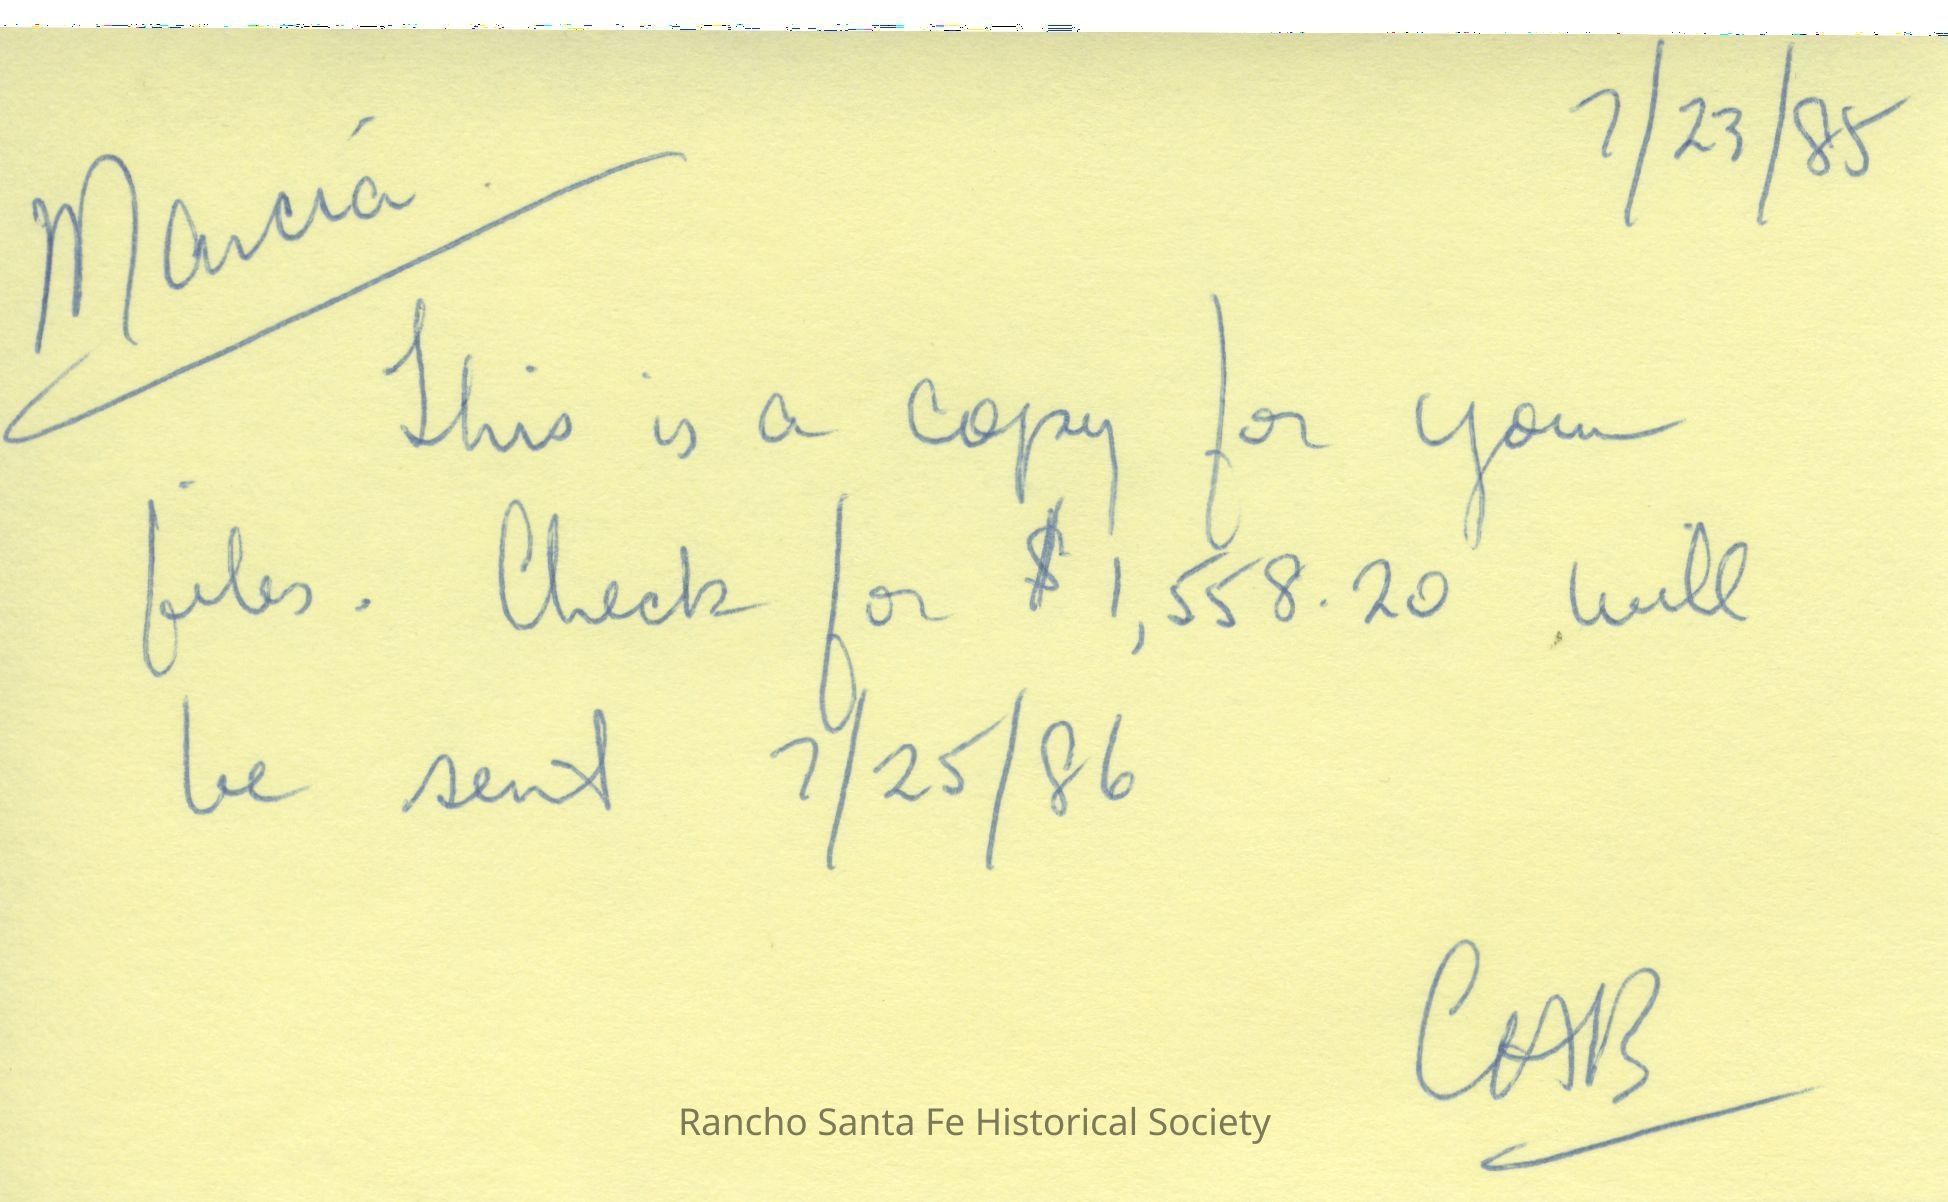 7/23/85
Marcia
This is a copy for your
files. Check for $1,558.20 will
be sent 7/25/86
CAB
Rancho Santa Fe Historical Society